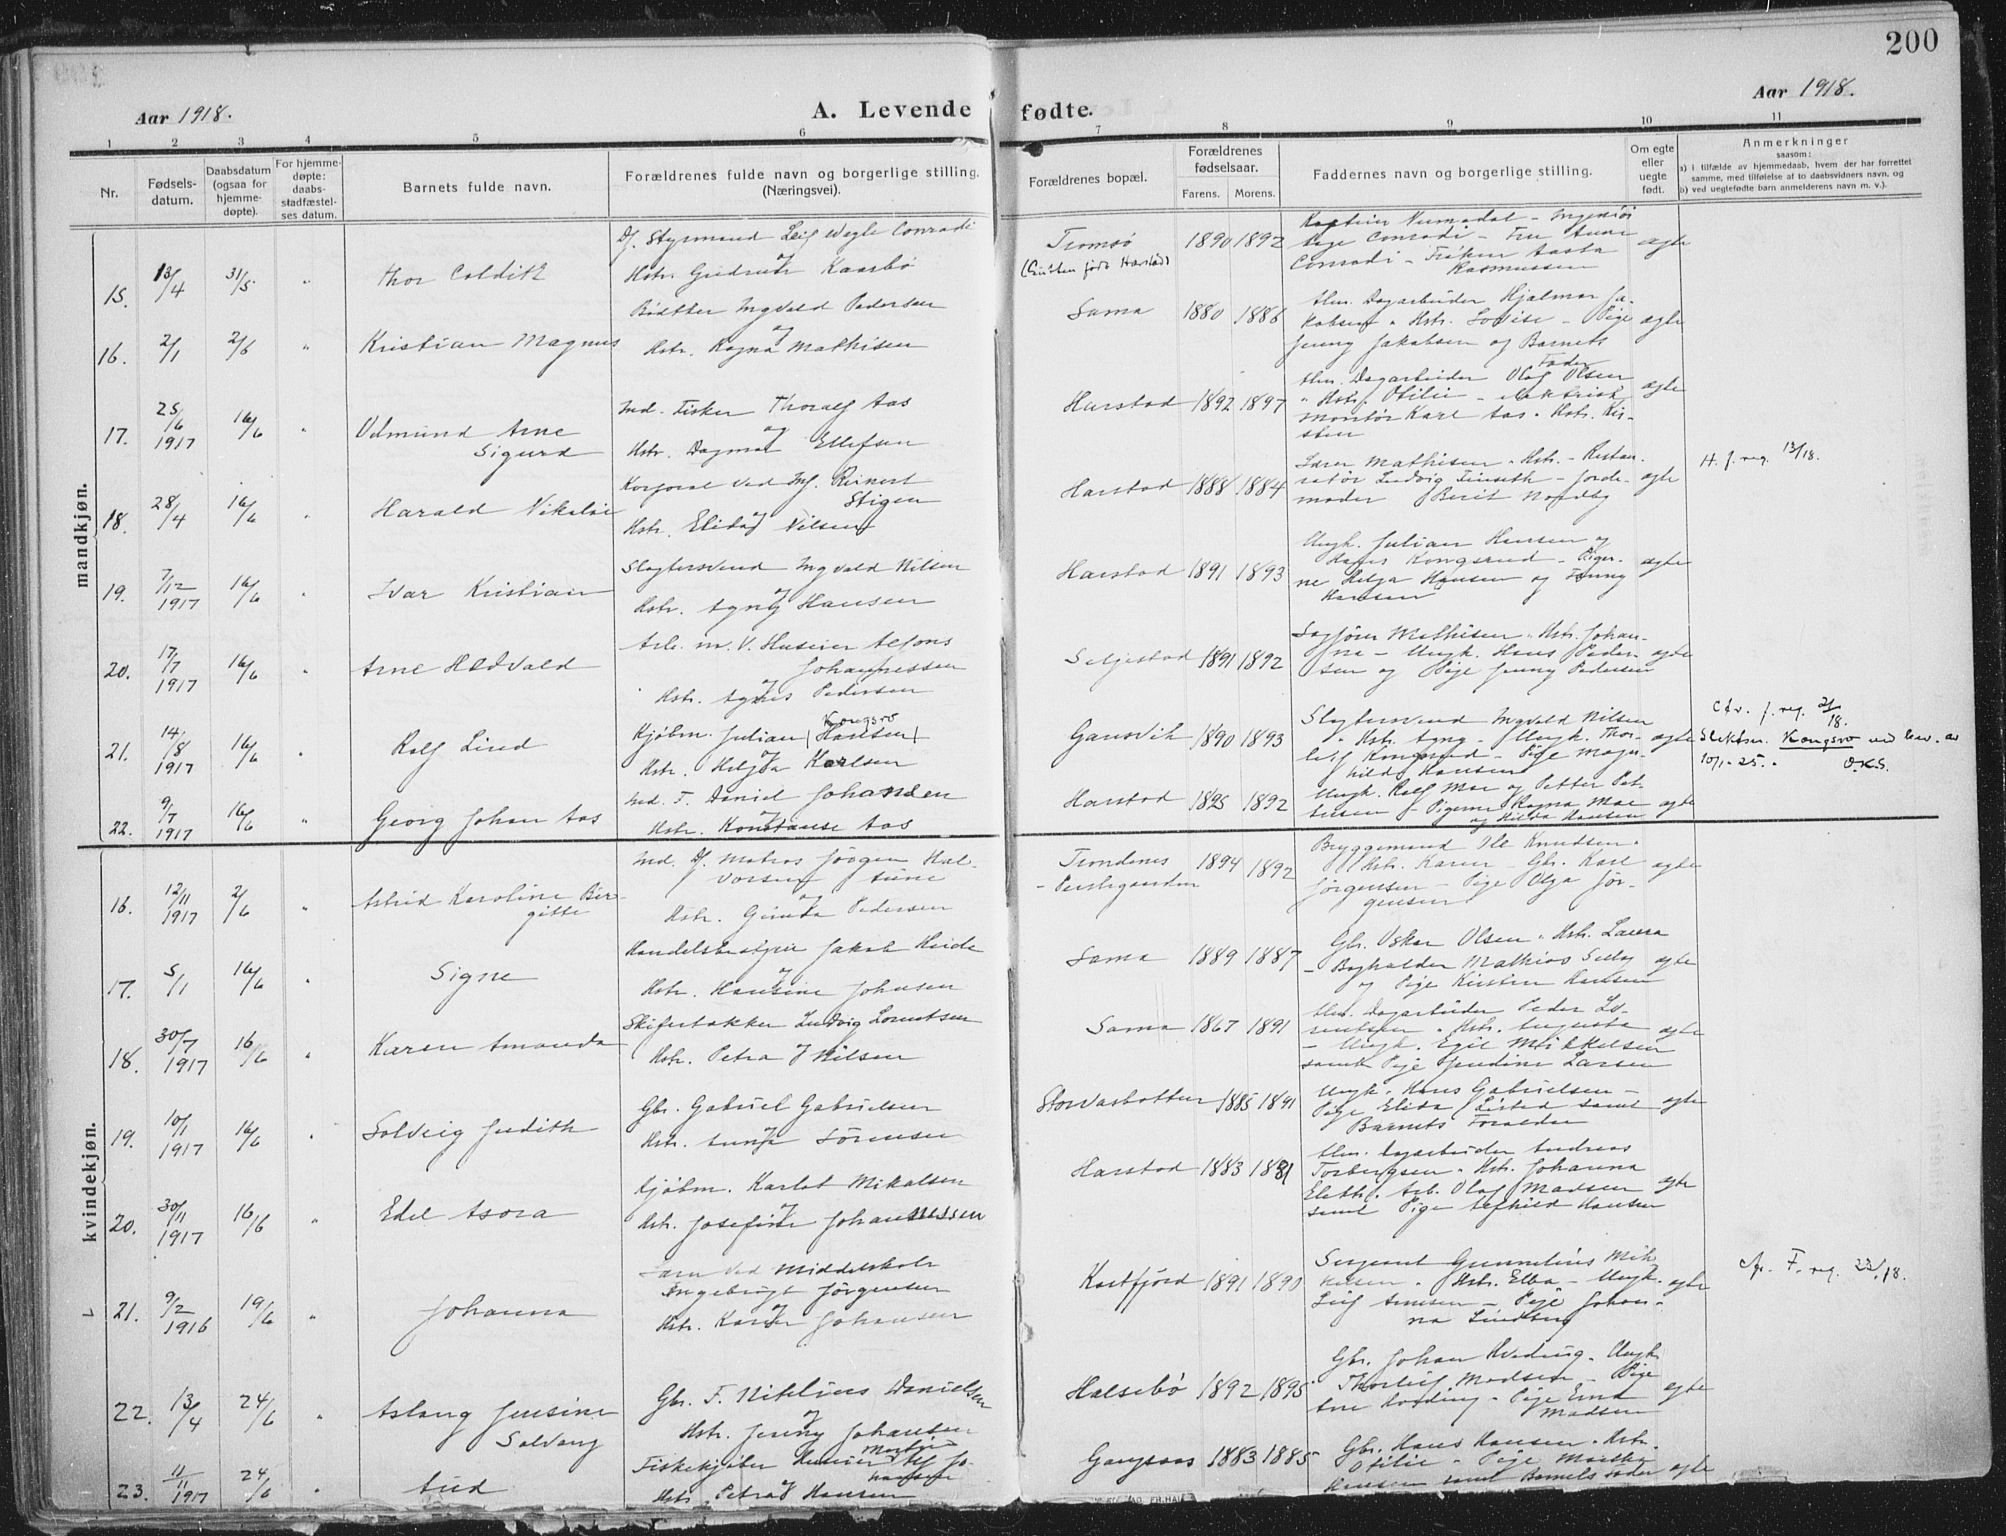 200
Aar 1918.
A. Levende fødte.
Aar 1918.
1 2 3 4 5 6 7 8 9 10 11
Nr.
Fødsels-
datum.
Daabsdatum
(ogsaa for
hjemme-
døpte).
For hjemme-
døpte:
daabs-
stadfæstel-
ses datum.
Barnets fulde navn.
Forældrenes fulde navn og borgerlige stilling.
(Næringsvei).
Forældrenes bopæl.
Forældrenes
fødselsaar.
Farens. Morens.
Faddernes navn og borgerlige stilling.
Om egte
eller
uegte
født.
Anmerkninger
saasom:
a) i tilfælde av hjemmedaab, hvem der har forrettet
samme, med tilføielse af to daabsvidners navn, og
b) ved uegtefødte barn anmelderens navn m. v.).
mandkjøn.
15. 13/4 31/5 " Thor Colditz
Df. Styrmand Leif Wegle Conradi
og
Hstr. Gudrun Kaarbø
Tromsø
(Gutten født Harstad)
1890 1892
Conradi - Frøken Aasta
Rasmussen
egte
16. 2/1 2/6 " Kristian Magnus
Bødtker Ingvald Pedersen
og
Hstr. Ragna Mathisen
Sama 1880 1886
Alm. Dagarbeider Hjalmar Ja-
kobsen " Hstr. Lovise - Pige
Jenny Jakobsen og Barnets
Fader
egte
17. 25/6 1917 16/6 " Odmund Arne
Sigurd
Ind. Fisker Thoralf Aas
og
Hstr. Dagmar Ellefsen
Harstad 1892 1897
Alm. Dagarbeider Olaf Olsen
" Hstr. Otilie - elektrisk
montør Karl Aas " Hstr. Kir-
sten
egte
18. 28/4 16/6 " Harald Nikolai
Korporal ved Inf. Reinert
Stigen
og
Hstr. Elida Nilsen
Harstad 1888 1884
Lærer Mathisen " Hstr. - Restau-
ratør Ludvig - Jorde-
moder Berit Nordby
egte
H. f. reg. 13/18.
19. 7/12 1917 16/6 " Ivar Kristian
Slagtersvend Ingvald Nilsen
og
Hstr. Agny Hansen
Harstad 1891 1893
Ungk. Julian Hansen og
Hans Kongsrud - Piger-
ne Helga Hansen og Fanny
Hansen
egte
20. 17/7 1917 16/6 " Arne Hedvald
Arb. m. V. Husеier Alfons
Johannessen
og
Hstr. Agnes Pedersen
Seljestad 1891 1892
Sagfører Mathisen " Hstr. Johan-
na - Ungk. Hans Peder-
sen og Pige Jenny Pedersen
egte
21. 14/8 1917 16/6 " Rolf Lind
Kjøbm. Julian (Hansen)
Kongsro
og
Hstr. Helga Karlsen
Gansvik 1890 1893
Slagtersvend Ingvald Nilsen
" Hstr. Agny - Ungk. Thor-
leif Kongsrud - Pige Mag-
hild Hansen
egte
f. reg. 2/18.
Slektsn. Kongsro ved bev. av
10/1-25. O.K.S.
22. 9/7 1917 16/6 " Georg Johan Aas
Ind. F. Daniel Johansen
og
Hstr. Konstanse Aas
Harstad 1895 1892
Ungk. Rolf Moe og Petter Pet-
tersen - Pigerne Ragna Moe
og Hilda Hansen
egte
kvindekjøn.
16. 12/11 1917 2/6 " Astrid Karoline Bir-
gitte
Ind. Df. Matros Jørgen Hal-
vorsen
og
Hstr. Pedersen
Trondenes
- Prestegaarden
1894 1892
Bryggemand Ole Knudsen "
Hstr. Karen - Gbr. Karl
Jørgensen - Pige Olga Jør-
gensen
egte
17. 5/1 16/6 " Signe
Handelsbestyrer Jakob Heide
og
Hstr. Hansine Johnsen
Sama 1889 1887
Gbr. Oskar Olsen " Hstr. Laura
- Bogholder Mathias
og Pige Kirsten Hansen
egte
18. 30/7 1917 16/6 " Karen Amanda
Skiferbrækker Ludvig Lorentsen
og
Hstr. Petra Nilsen
Sama 1867 1891
Alm. Dagarbeider Peder Lo-
rentsen " Hstr. Augusta
- Ungk. Egil Mikkelsen
samt Pige Larsen
egte
19. 10/1 1917 16/6 " Solveig Judith
Gbr. Gabriel Gabrielsen
og
Hstr. Anna Sørensen
Storvasbotten 1885 1891
Ungk. Hans Gabrielsen -
Pige Elida samt
Barnets Forældre
egte
20. 30/11 1917 16/6 " Edel Asora
Kjøbm. Karlot Mikalsen
og
Hstr. Josefine Johannessen
Harstad 1883 1881
Alm. Dagarbeider Andreas
Torbergsen " Hstr. Johanna
Elektr. Arb. Olaf Madsen
samt Pige Alfhild Hansen
egte
21. 9/2 1916 19/6 " Johanna
Lærer ved Middelskole
Ingebrigt Jørgensen
og
Hstr. Karen Johansen
Kastfjord 1891 1890
Sersjant Gunnelius Mik-
kelsen " Hstr. Elba - Ungk.
Leif Arnesen - Pige Johan-
na Lindberg
egte
F. reg. 22/18.
22. 13/4 24/6 " Aslaug Jensine
Solvang
Gbr. F. Niklius Danielsen
og
Hstr. Jenny Johansen
Halsebø 1892 1895
Gbr. Johan Hveding - Ungk.
Thorleif Madsen - Pige
Madsen
egte
23. 11/11 1917 24/6 " Aud
Fiskekjøber Husеier Alf Jo-
hansen
Hstr. Petra Hansen
Gangsaas 1883 1885
Gbr. Hans Hansen " Hstr.
Otilie - Pige
Hansen samt Barnets Fader
egte